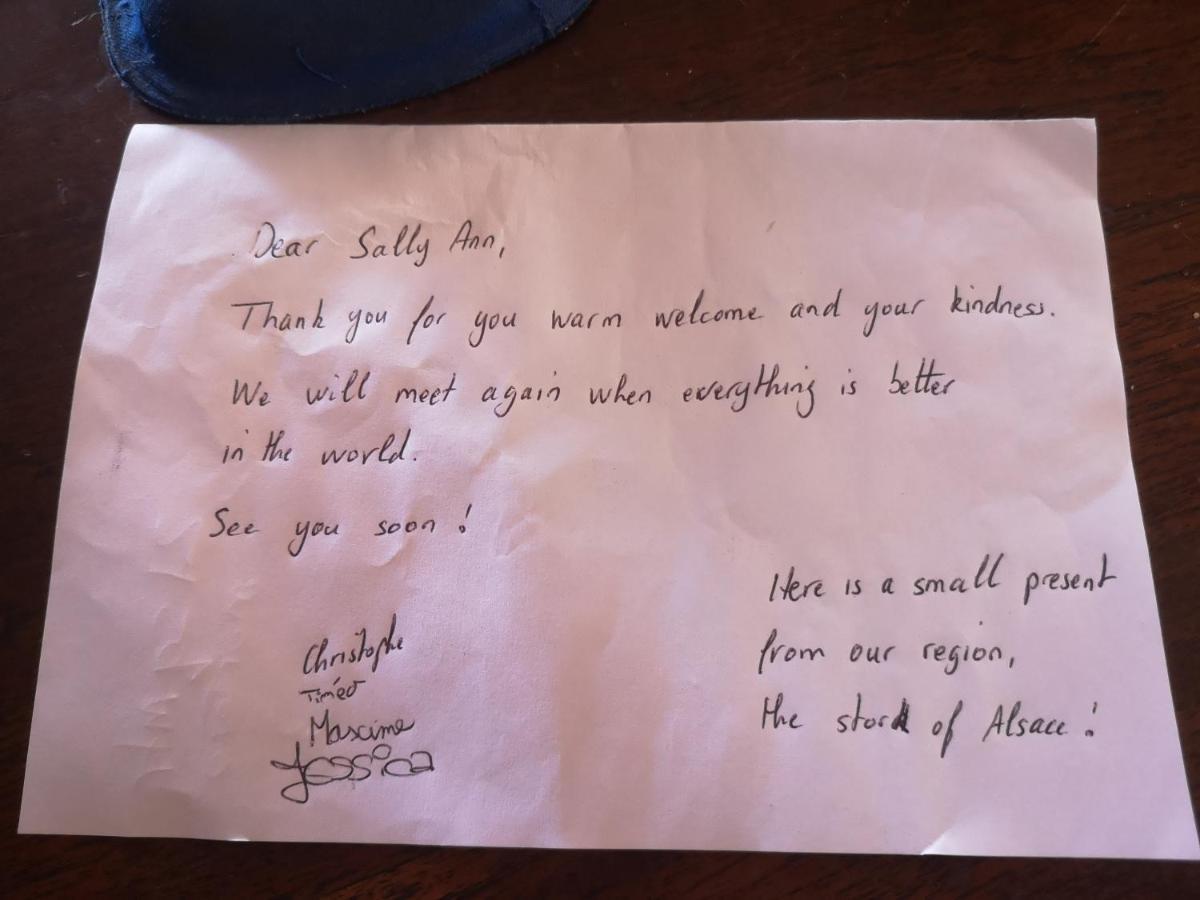 Dear Sally Ann,
Thank you for you warm welcome and your kindness.
We will meet again when everything is better
in the world.
See you soon !
Christophe
Timéo
Maxime
Jessica
Here is a small present
from our region,
the stork of Alsace !